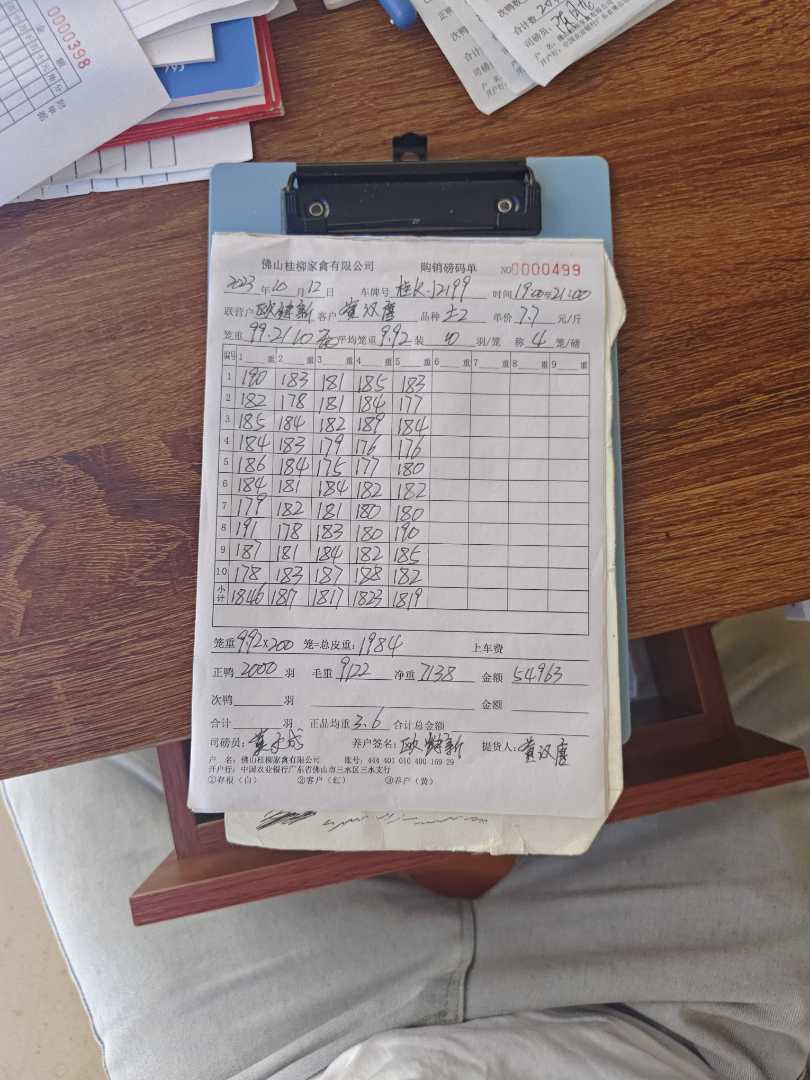 0000398
佛山桂柳家禽有限公司 购销磅码单 NO0000499
2023年10月12日 车牌号 桂K.J2199 时间19:00至21:00
联营户 欧特新 客户 黄汉唐 品种 土2 单价7.7元/斤
笼重99.2/10 平均笼重9.92装10羽/笼 称4笼/磅
编号 1 重 2 重 3 重 4 重 5 重 6 重 7 重 8 重 9 重
1 190 183 181 185 183
2 182 178 181 184 177
3 185 184 182 189 184
4 184 183 179 176 176
5 186 184 175 177 180
6 184 181 184 182 182
7 179 182 181 180 180
8 191 178 183 180 190
9 187 181 184 182 185
10 178 183 187 188 182
小计 1846 1817 1817 1823 1819
笼重9.92×200笼=总皮重:1984 上车费
正鸭2000羽 毛重9122 净重7138 金额54963
次鸭 羽 金额
合计 羽 正品均重3.6 合计总金额
司磅员: 养户签名:欧特新 提货人:黄汉唐
户 名:佛山桂柳家禽有限公司 账号:444 401 010 400 169 29
开户行:中国农业银行广东省佛山市三水区三水支行
①存根(白) ②客户(红) ③养户(黄)